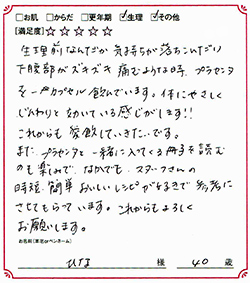 □お肌 □からだ □更年期 ☑生理 ☑その他
[満足度]☆☆☆☆☆
生理前なんだか気持ちが落ちこんだり
下腹部がズキズキ痛むような時、プラセンタ
を一月カプセル飲んでいます。体にやさしく
じんわりと効いている感じがします!!
これからも愛飲していきたいです。
また、プラセンタと一緒に入ってくる冊子を読む
のも楽しみで、なかでも、スタッフさんの
時短、簡単おいしいレシピが好きで参考に
させてもらっています。これからもよろしく
お願いします。
お名前(本名orペンネーム)
ひな 様 40 歳